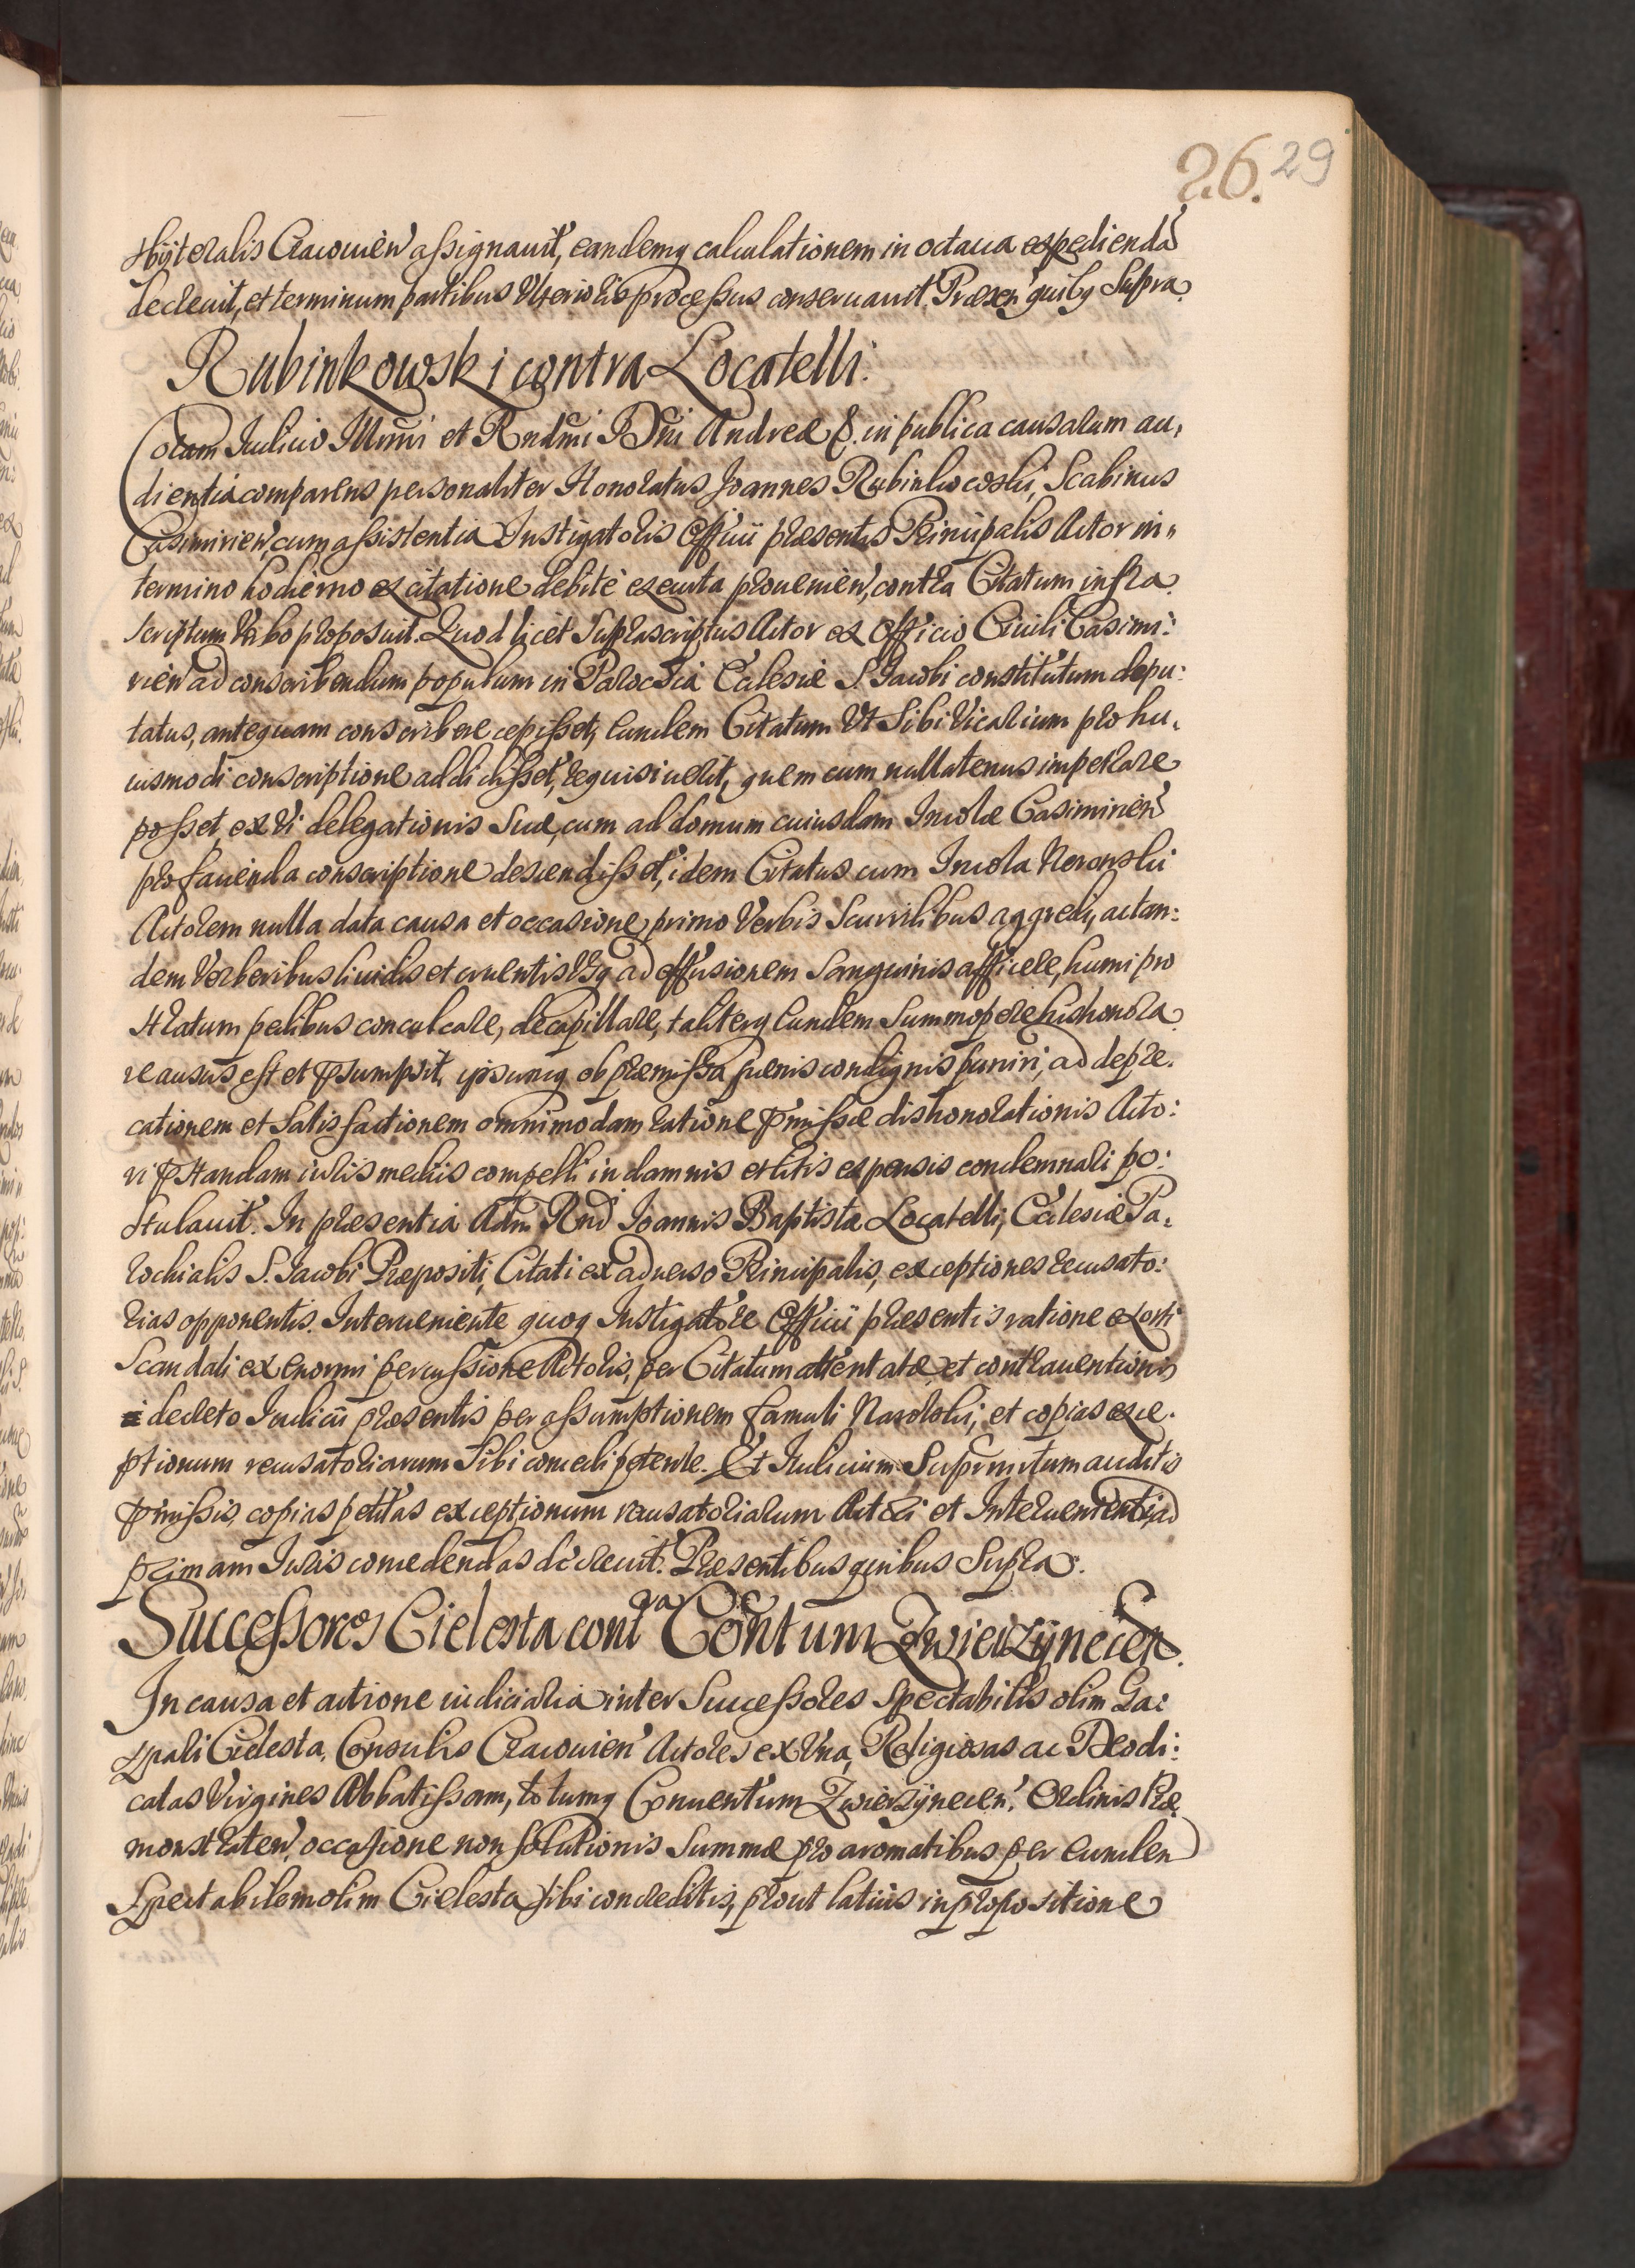 26. 29
sbÿteralis Cracouien' assignauit, eandemq calculationem in octaua expediendã
decreuit, et terminum partibus Vlterioris processus conseruauit. Præsen' quibq Supra.
Rubinkowski contra Locatelli.
Coram Iudicio Illmi et Rndmi Dni Andreæ &. in publica causarum au,
dientia comparens personaliter Honoratus Joannes Rubinkowski, Scabinus
Casimirien' cum assistentia Instigatoris Officii præsentis Principalis Actor in,,
termino hodierno ex citatione debitè executa proueniên', contra Citatum infra
scriptum Verbo proposuit. Quod licet Suprascriptus Actor ex Officio Ciuili Casimi:
rien' ad conscribendum populum in Parochia Ecclesiæ S. Jacobi constitutum depu:
tatus, antequam conscribere cepisset, Eundem Citatum Vt Sibi Vicarium pro hu,
iusmodi conscriptione addidisset, requisiuerit, quem cum nullatenus impetrare
posset, ex Vi delegationis Suæ, cum ad domum cuiusdam Incolæ Casimirien'
pro facienda conscriptione descendisset, idem Citatus cum Incola
Actorem nulla data causa et occasione, primo Verbis Scurrilibus aggredi, ac tan:
dem Verberibus liuidis et cruentis Vsq ad effusionem Sanguinis afficere, humi pro
stratum pedibus conculcare, decapillare, taliterq Eundem Summopere dishonora
re ausus est et psumpsit, ipsumq ob præmissa pænis condignis puniri, ad depre.
cationem et Satisfactionem omnimodam ratione pmissæ dishonorationis Acto:
ri pstandam iuris mediis compelli in damnis et litis expensis condemnari po:
stulauit. In præsentia Adm Rnd Joannis Baptistæ Locatelli, Ecclesiæ Pa,
rochialis S. Jacobi Præpositi, Citati ex aduerso Principalis, exceptiones recusato:
rias opponentis. Interueniente quoq Instigatore Officii præsentis ratione exorti
Scandali ex enormi percussione Actoris, per Citatum attentatæ, et contrauentionis
decreto Iudicii præsentis per assumptionem famuli et copias exce.
ptionum recusatoriarum Sibi concedi petente. Et Iudicium Suprmtum auditis
pmissis, copias petitas exceptionum recusatoriarum Actori et Interuenienti, ad
primam Iuris concedendas decreuit. Præsentibus quibus Supra.
Successores Cielesta contra Conuentum Zwierzÿnecen.
In causa et actione iudiciaria inter Successores Spectabilis olim Ga:
spari Cielesta, Consulis Cracouien' Actores ex Vna, Religiosas ac Deodi:
catas Virgines Abbatissam, totumq Conuentum Zwierzÿnecen.' Ordinis Præ,
monstraten', occasione non Solutionis Summæ pro aromatibus per Eunden
Spectabilem olim Cielesta sibi concreditis, prout latius in propositione